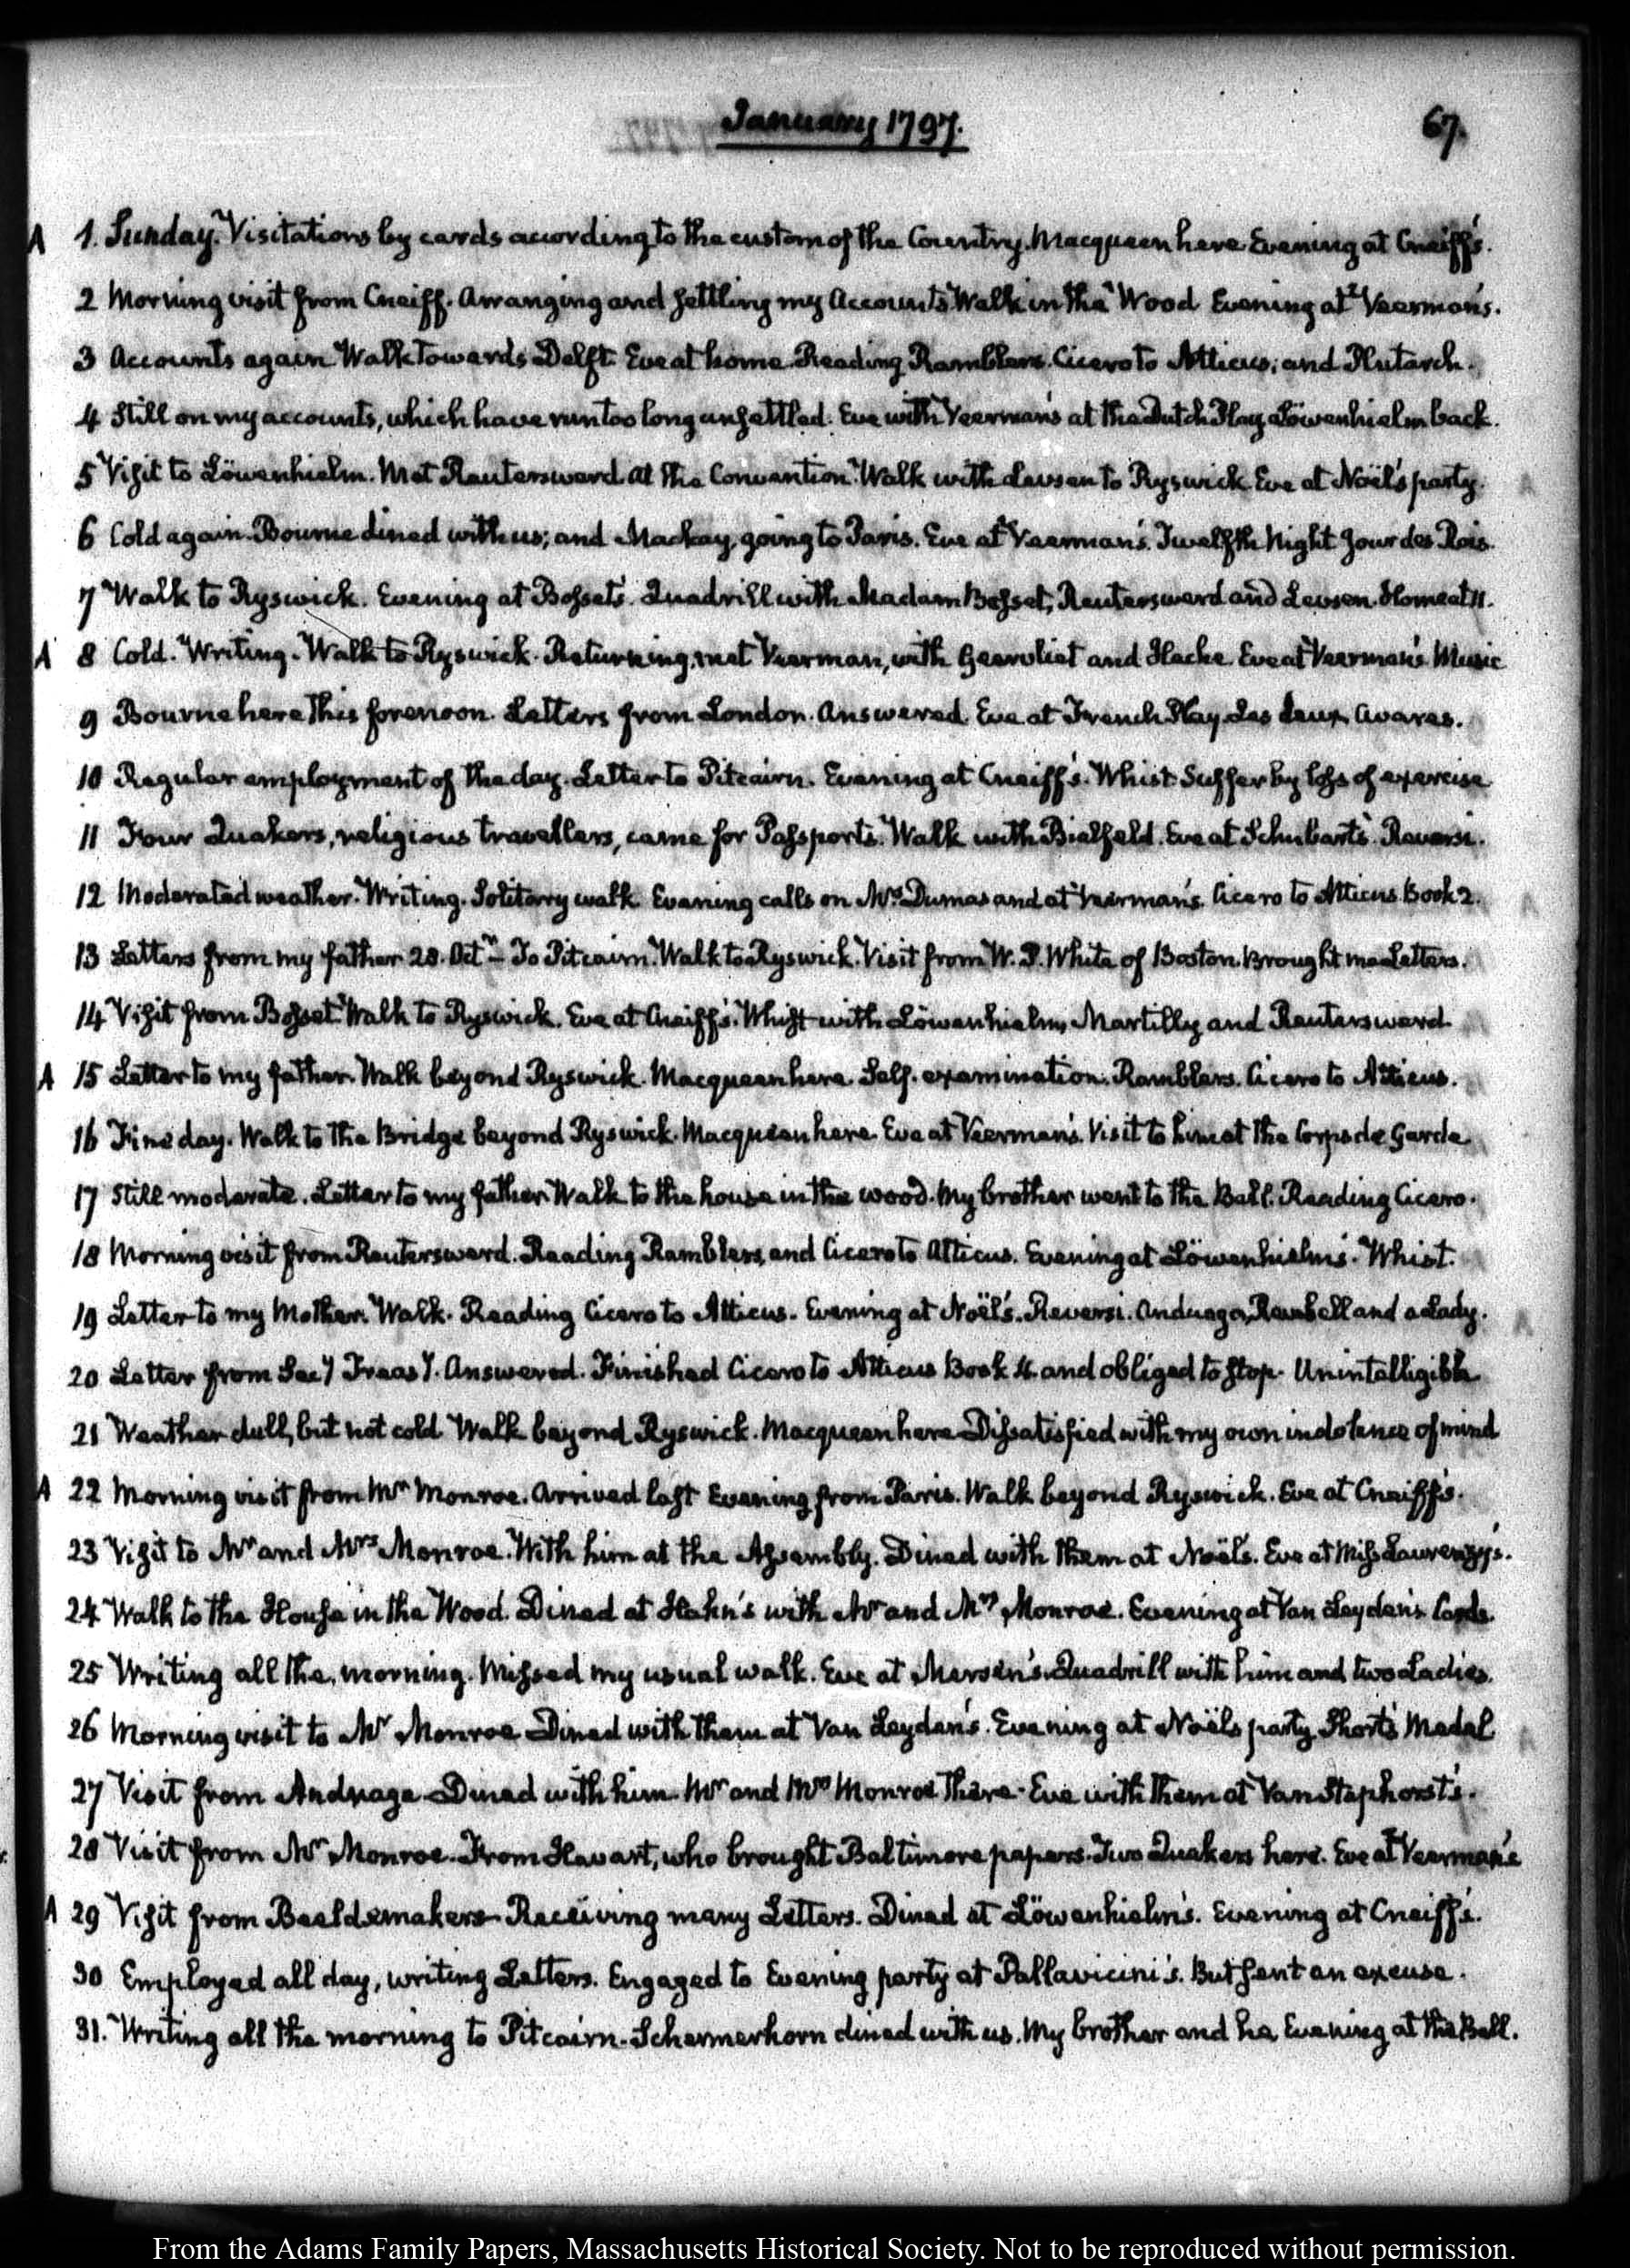 January 1797.
67.
A 1. Sunday. Visitations by cards according to the custom of the Country. Macqueen here. Evening at Cneiff's.
2 Morning visit from Cneiff. Arranging and settling my Accounts. Walk in the Wood Evening at Veerman's.
3 Accounts again Walk towards Delft. Eve at home. Reading Ramblers. Cicero to Atticus; and Plutarch.
4 Still on my accounts, which have run too long unsettled. Eve with Veerman's at the Dutch Play. Löwenhielm back.
5 Visit to Löwenhielm. Met Reutersward at the Convention. Walk with Levsen to Ryswick. Eve at Noël's party.
6 Cold again. Bourne dined with us; and Mackay, going to Paris. Eve at Veerman's. Twelfth Night Jour des Rois.
7 Walk to Ryswick. Evening at Bosset's. Quadrill with Madam Bosset, Reutersward and Levsen. Home at 11.
A 8 Cold. Writing. Walk to Ryswick. Returning, met Veerman, with Geervliet and Hacke. Eve at Veerman's. Music
9 Bourne here this forenoon. Letters from London. Answered. Eve at French Play. Les deux Avares.
10 Regular employment of the day. Letter to Pitcairn. Evening at Cneiff's. Whist. Suffer by loss of exercise
11 Four Quakers, religious travellers, came for Passports. Walk with Bielfeld. Eve at Schubart's. Reversi.
12 Moderated weather. Writing. Solitary walk. Evening calls on Mrs. Dumas and at Veerman's. Cicero to Atticus. Book 2.
13 Letters from my father 28. Octr. To Pitcairn. Walk to Ryswick. Visit from W. P. White of Boston. Brought me Letters.
14 Visit from Bosset. Walk to Ryswick. Eve at Cneiff's. Whist with Löwenhielm, Martilly and Reutersward.
A 15 Letter to my father. Walk beyond Ryswick. Macqueen here. Self-examination. Ramblers. Cicero to Atticus.
16 Fine day. Walk to the Bridge beyond Ryswick. Macqueen here. Eve at Veerman's. Visit to him at the Corps de Garde
17 Still moderate. Letter to my father Walk to the house in the wood. My brother went to the Ball. Reading Cicero.
18 Morning visit from Reutersward. Reading Ramblers, and Cicero to Atticus. Evening at Löwenhielm's. Whist.
19 Letter to my Mother. Walk. Reading Cicero to Atticus. Evening at Noël's. Reversi. Anduaga, Rewbell and a Lady.
20 Letter from Secy. Treasy. Answered. Finished Cicero to Atticus Book 4. and obliged to stop. Unintelligible
21 Weather dull, but not cold. Walk beyond Ryswick. Macqueen here. Dissatisfied with my own indolence of mind
A 22 Morning visit from Mr Monroe. Arrived last Evening from Paris. Walk beyond Ryswick. Eve at Cneiff's.
23 Visit to Mr and Mrs Monroe. With him at the Assembly. Dined with them at Noël's. Eve at Miss
24 Walk to the House in the Wood. Dined at Hahn's with Mr and Mrs Monroe. Evening at Van Leyden's. Cards.
25 Writing all the morning. Missed my usual walk. Eve at Mersen's. Quadrill with him and two Ladies.
26 Morning visit to Mr Monroe Dined with them at Van Leyden's. Evening at Noël's party. Short's Medal
27 Visit from Anduaga. Dined with him. Mr and Mrs Monroe there. Eve with them at Van Staphorst's.
28 Visit from Mr Monroe. From Havart, who brought Baltimore papers. Two Quakers here. Eve at Veerman's
A 29 Visit from Beeldemakers Receiving many Letters. Dined at Löwenhielm's. Evening at Cneiff's.
30 Employed all day, writing Letters. Engaged to Evening party at Pallavicini's. But sent an excuse.
31. Writing all the morning to Pitcairn. Schermerhorn dined with us. My brother and he, Evening at the Ball.
From the Adams Family Papers, Massachusetts Historical Society. Not to be reproduced without permission.